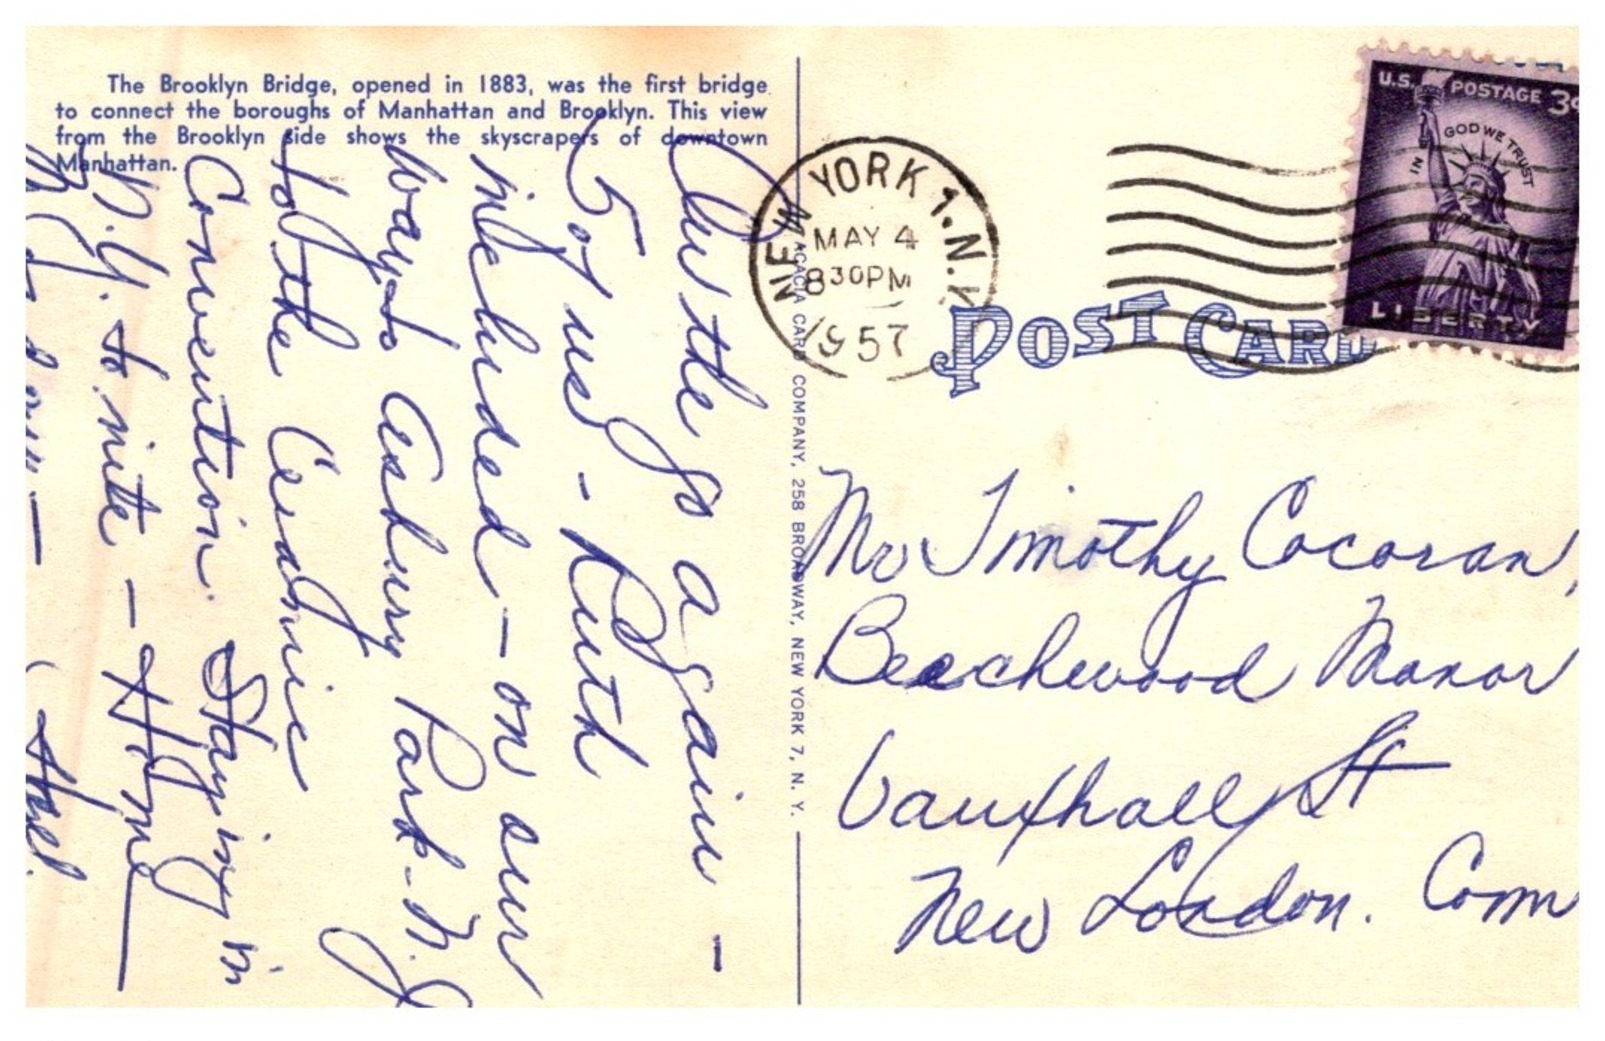 The Brooklyn Bridge, opened in 1883, was the first bridge
to connect the boroughs of Manhattan and Brooklyn. This view
from the Brooklyn side shows the skyscrapers of downtown
Manhattan.
Awthe go again -
5 of us - Ruth
included - on our
way to Asbury Park - N.J
to the
Convention. Staying in
N.Y. to nite - Home
ACACIA CARD COMPANY, 258 BROADWAY, NEW YORK 7, N. Y.
NEW YORK 1. N.Y.
MAY 4
830PM
1957
U.S. POSTAGE 3¢
IN GOD WE TRUST
LIBERTY
POST CARD
Mr Timothy Cocoran,
Beechwood Manor
Vauxhall St
New London. Conn